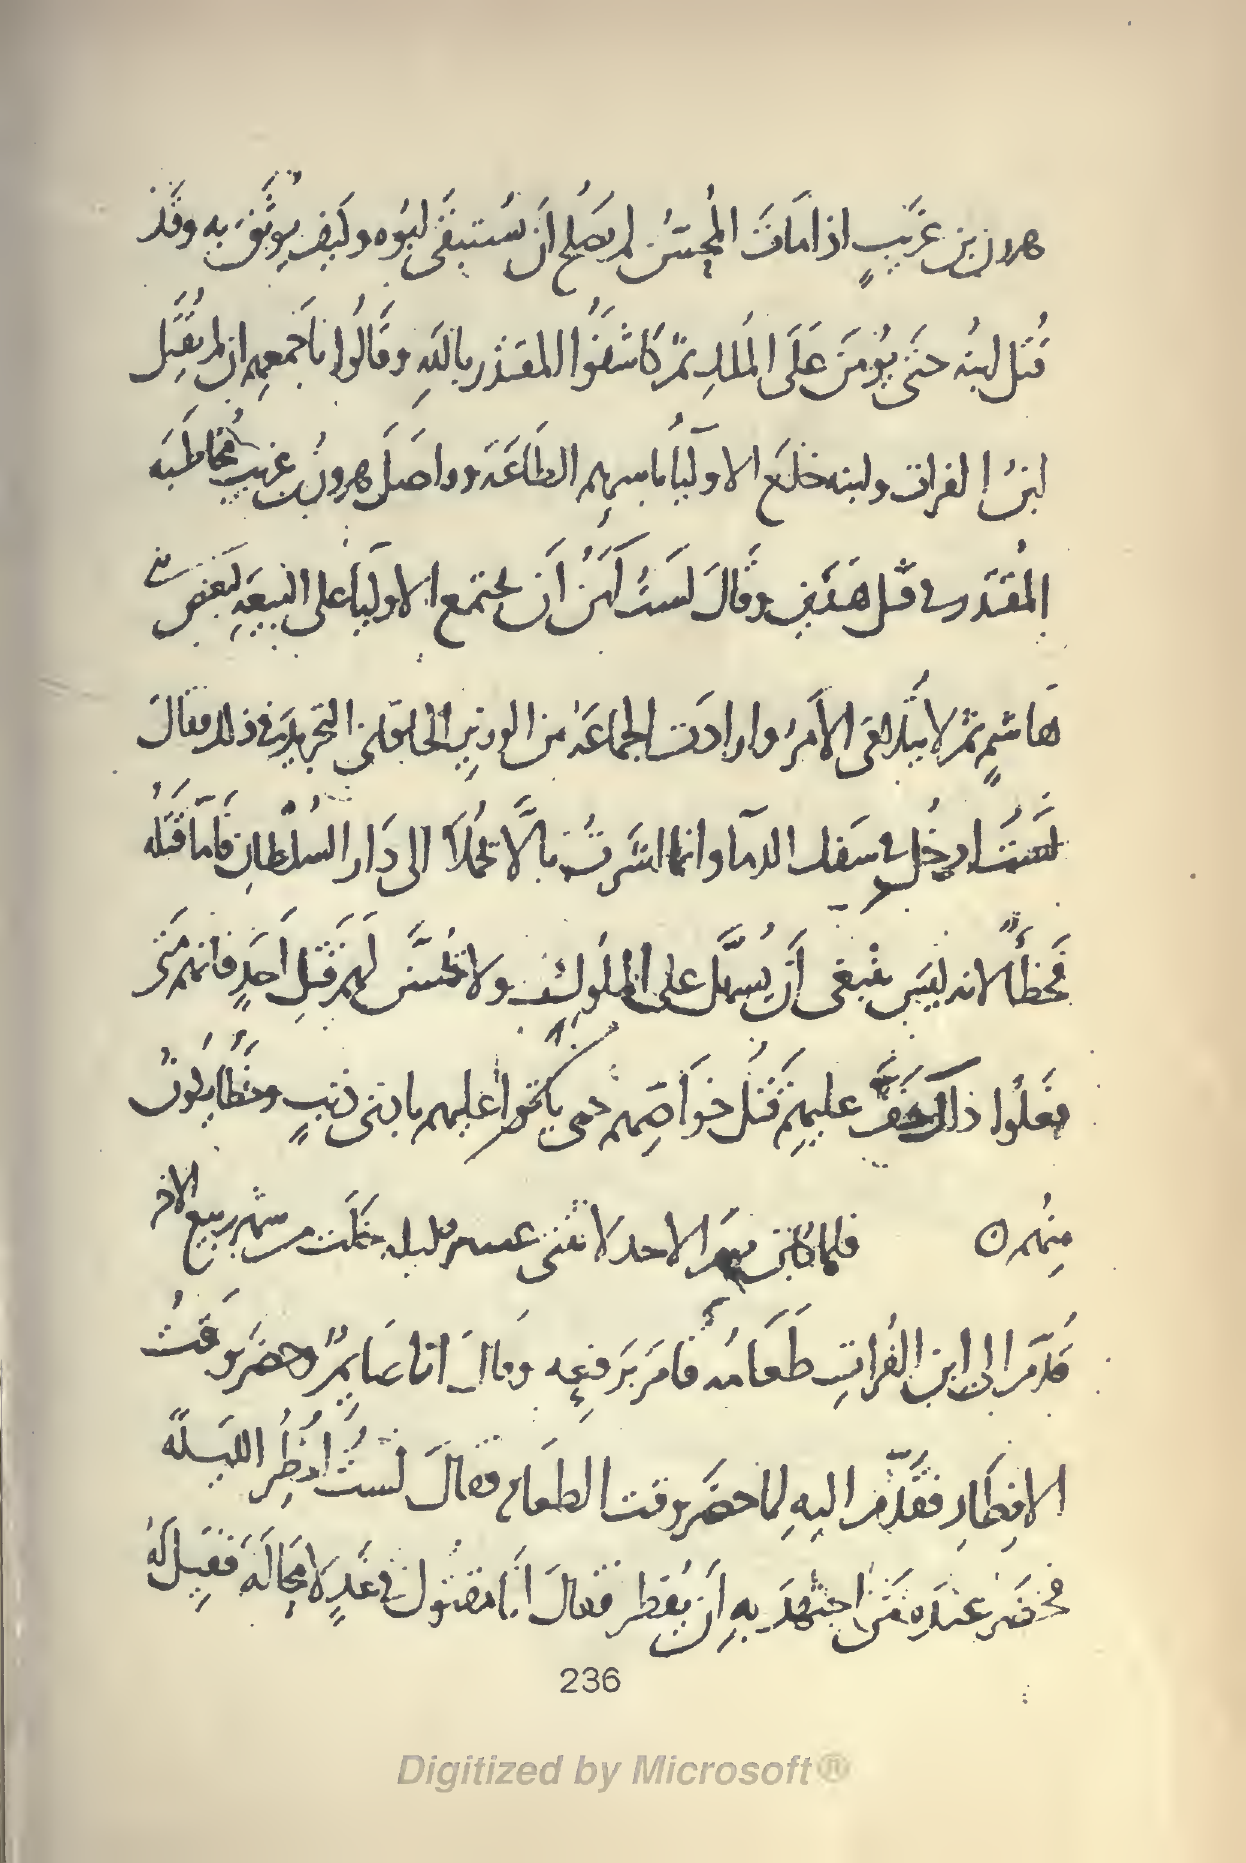 هرون بن غَرِيبٍ اذا مَاتَ المُحِسّنُ لم يَصلُح اَن يُستبقَى ابُوه وكَيفَ يُوثَقُ بِه وقَد
قُتل ابنُه حتى يُؤمَنَ عَلَى المُلكِ ثمّ كَاشَفُوا المقتدر بالله وقَالُوا باَجمعِهم ان لم يُقتَل
ابنُ الفرات وابنه خلَعَ الاَولياُ باسرِهم الطَاعَة وواصَل هرونُ بن غريب مُخاطَبة
المُقتَدر في قتل هَذَين وقَالَ لَستُ آمَنُ اَن يجتمع الاولياُ على البيعَةِ لبَعضِ بني
هَاشمٍ ثمّ لا يُتلافَى الاَمرُ وارادَت الجماعَة من الوزير الخاقاني التجريدَ في ذلك فقالَ
لستُ ادخُل في سَفك الدمآ وانما اشَرتُ بالَّا يُحمَلا الى دَار السُلطانِ فَامّا قَتلُه
فخطَأٌ لانه ليسَ ينبغى اَن يُسهَّل على المُلوك ولا يُحسَّن لهم قَتلِ اَحَدٍ فانهم مَتى
فعَلُوا ذلك خَفَّ عليهِم قَتل خوَاصِّهم حتى ياتُوا عليهم بادنى ذَنبٍ وخَطأ يكونُ
مِنهُم ه فلما كان يوم الاحد لاثنتى عشره ليله خَلَت من شهر ربيع الاخر
قُدّم الى ابن الفُراتِ طَعَامُه فَامَر بَرفعِه وقال انا صَايمٌ وحضَر وقتُ
الافطارِ فقُدّم اليهِ لما حضَر وقت الطعام فقال لَستُ اُفطِرُ الليلَة
فحضر عندَه مَن اجتهدَ به اَن يُفطر فقالَ اَنا مقتول في غَدٍ لا محالَةَ فقيلَ لَهُ
236
Digitized by Microsoft®